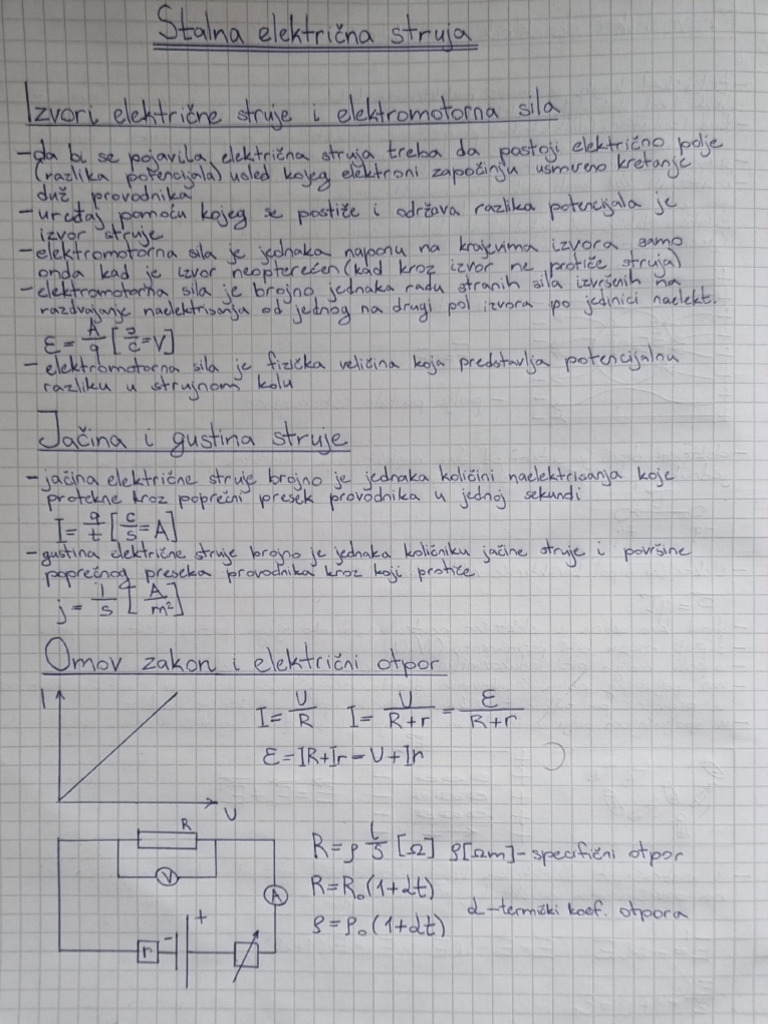 Stalna električna struja
Izvori električne struje i elektromotorna sila
- da bi se pojavila električna struja treba da postoji električno polje
(razlika potencijala) usled kojeg elektroni započinju usmereno kretanje
duž provodnika
- uređaj pomoću kojeg se postiže i održava razlika potencijala je
izvor struje
- elektromotorna sila je jednaka naponu na krajevima izvora samo
onda kad je izvor neopterećen (kad kroz izvor ne protiče struja)
- elektromotorna sila je brojno jednaka radu stranih sila izvršenih na
razdvajanje naelektrisanja od jednog na drugi pol izvora po jedinici naelekt.
ε = A/q [J/C = V]
- elektromotorna sila je fizička veličina koja predstavlja potencijalnu
razliku u strujnom kolu
Jačina i gustina struje
- jačina električne struje brojno je jednaka količini naelektrisanja koje
protekne kroz poprečni presek provodnika u jednoj sekundi
I = q/t [C/s = A]
- gustina električne struje brojno je jednaka količniku jačine struje i površine
poprečnog preseka provodnika kroz koji protiče
j = I/S [A/m²]
Omov zakon i električni otpor
I
U
I = U/R I = U/(R+r) = ε/(R+r)
ε = IR + Ir = U + Ir
R
V
A
r
- +
R = ρ l/S [Ω] ρ[Ωm] - specifični otpor
R = R₀(1+αt)
α - termički koef. otpora
ρ = ρ₀(1+αt)